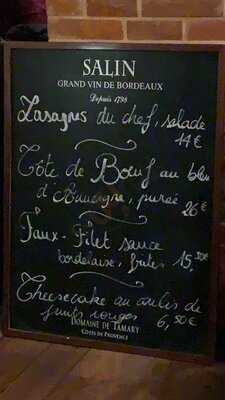 SALIN
GRAND VIN DE BORDEAUX
Depuis 1798
Lasagnes du chef, salade
14 €
Côte de Bœuf au bleu
d'Auvergne, purée 26 €
Faux-Filet sauce
bordelaise, frites 15,50€
Cheesecake au coulis de
fruits rouges 6,50€
DOMAINE DE TAMARY
CÔTES DE PROVENCE